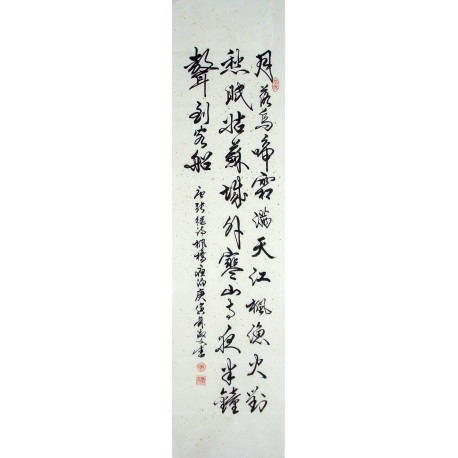 月落烏啼霜滿天江楓漁火對
愁眠姑蘇城外寒山寺夜半鐘
聲到客船
唐張繼詩楓橋夜泊庚寅年